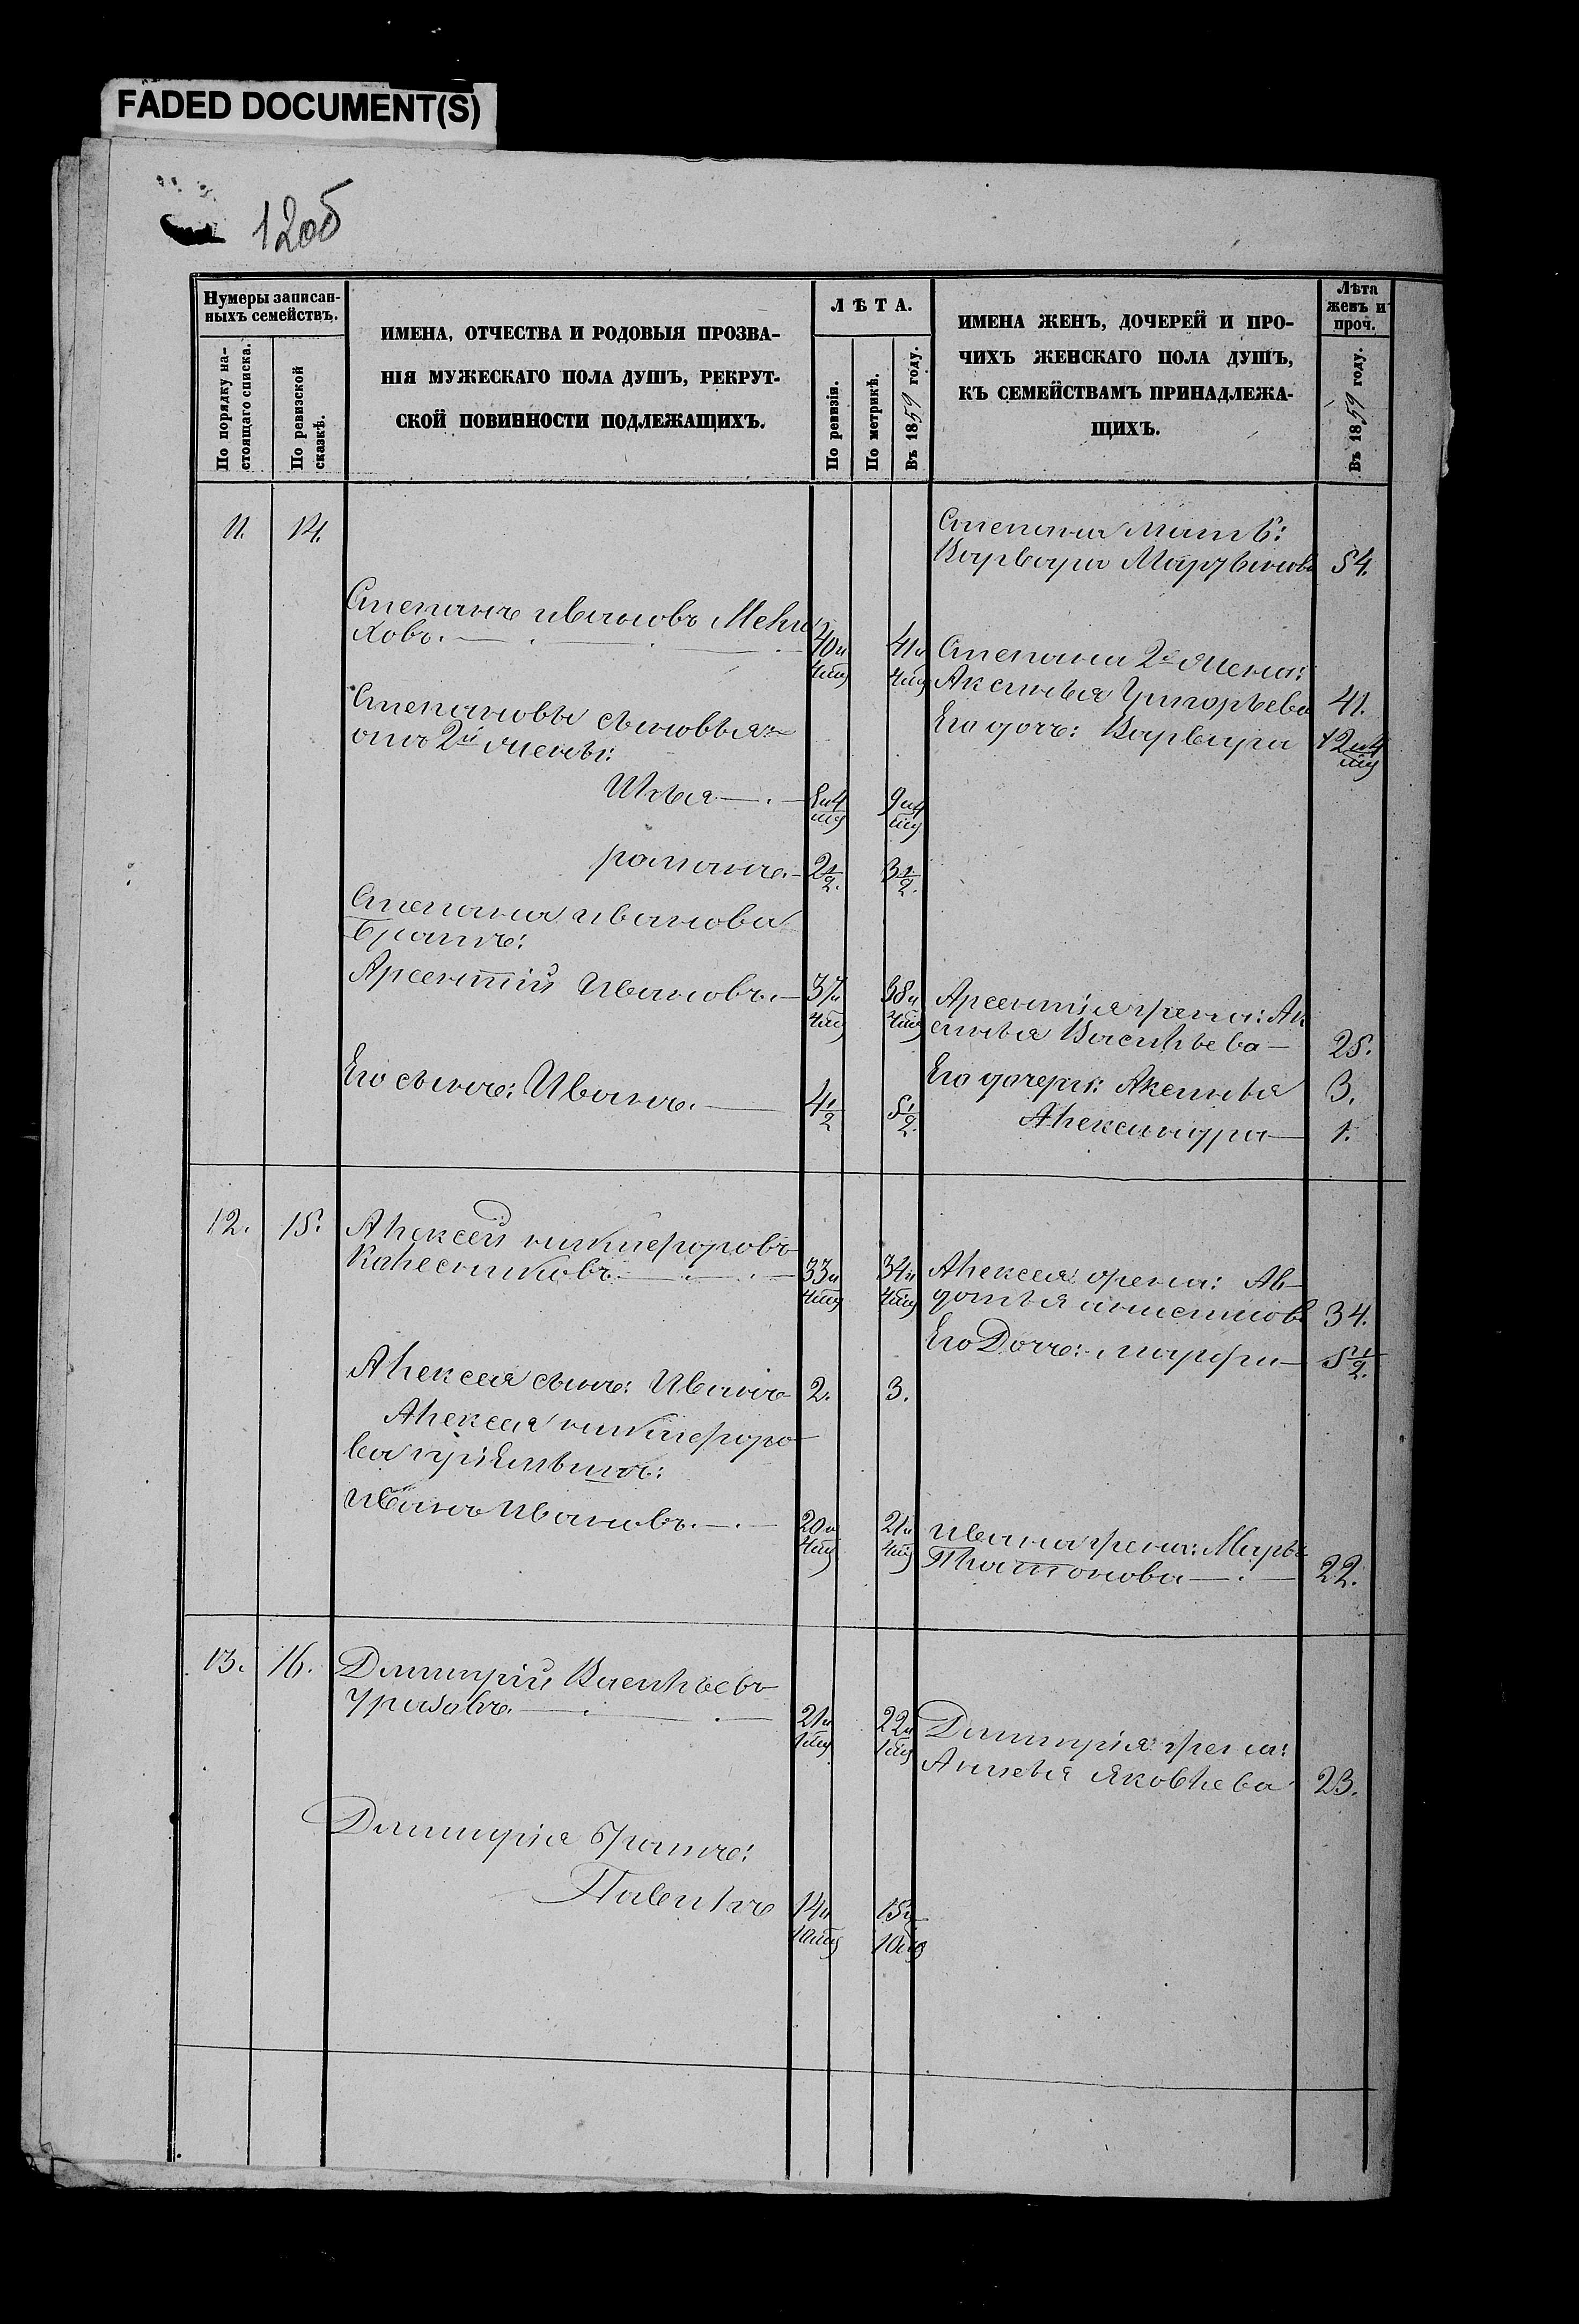 FADED DOCUMENT(S)
12об
Нумеры записан-
ныхъ семействъ.
По порядку на-
стоящаго списка.
По ревизской
сказкѣ.
ИМЕНА, ОТЧЕСТВА И РОДОВЫЯ ПРОЗВА-
НІЯ МУЖЕСКАГО ПОЛА ДУШЪ, РЕКРУТ-
СКОЙ ПОВИННОСТИ ПОДЛЕЖАЩИХЪ.
ЛѢТА.
По ревизіи.
По метрикѣ.
Въ 1859 году.
ИМЕНА ЖЕНЪ, ДОЧЕРЕЙ И ПРО-
ЧИХЪ ЖЕНСКАГО ПОЛА ДУШЪ,
КЪ СЕМЕЙСТВАМЪ ПРИНАДЛЕЖА-
ЩИХЪ.
Лѣта
женъ и
проч.
Въ 1859 году.
11. 14.
Степана мать:
Варвара 54.
Степанъ ивановъ
ховъ. 40 и 4 мѣ 41 и 4 мѣ
Степана 2я жена:
Аксинья Григорьева 41.
Его дочь: Варвара 12 и 4 мѣ
Степановы сыновья
отъ 2й жены:
Илья 8 и 4 мѣ 9 и 4 мѣ
романъ. 2 1/2. 3 1/2.
Степана иванова
братъ:
Арсентій Ивановъ. 37 и 4 мѣ 38 и 4 мѣ
Арсентія жена: Ак
синья Васильева 25.
Его сынъ: Иванъ. 4 1/2 5 1/2.
Его дочери: Аксинья 3.
Александра 1.
12. 15. Алексей никифоровъ
Калесниковъ. 33 и 4 мѣ 34 и 4 мѣ
Алексея жена: Ав-
дотья анисимов 34.
Его Дочь: марфа 5 1/2.
Алексея сынъ: Иванъ 2. 3.
Алексея никифоро
ва пріемышъ:
иванъ Ивановъ. 20 и 4 мѣ 21 и 4 мѣ
ивана жена: Марья
Платонова 22.
13. 16. Димитрій Васильевъ
21 и 1 мѣ 22 и 1 мѣ
Димитрія жена:
Яковлева 23.
Димитрія братъ:
Павелъ 14 и 10 мѣ 15 и 10 мѣ